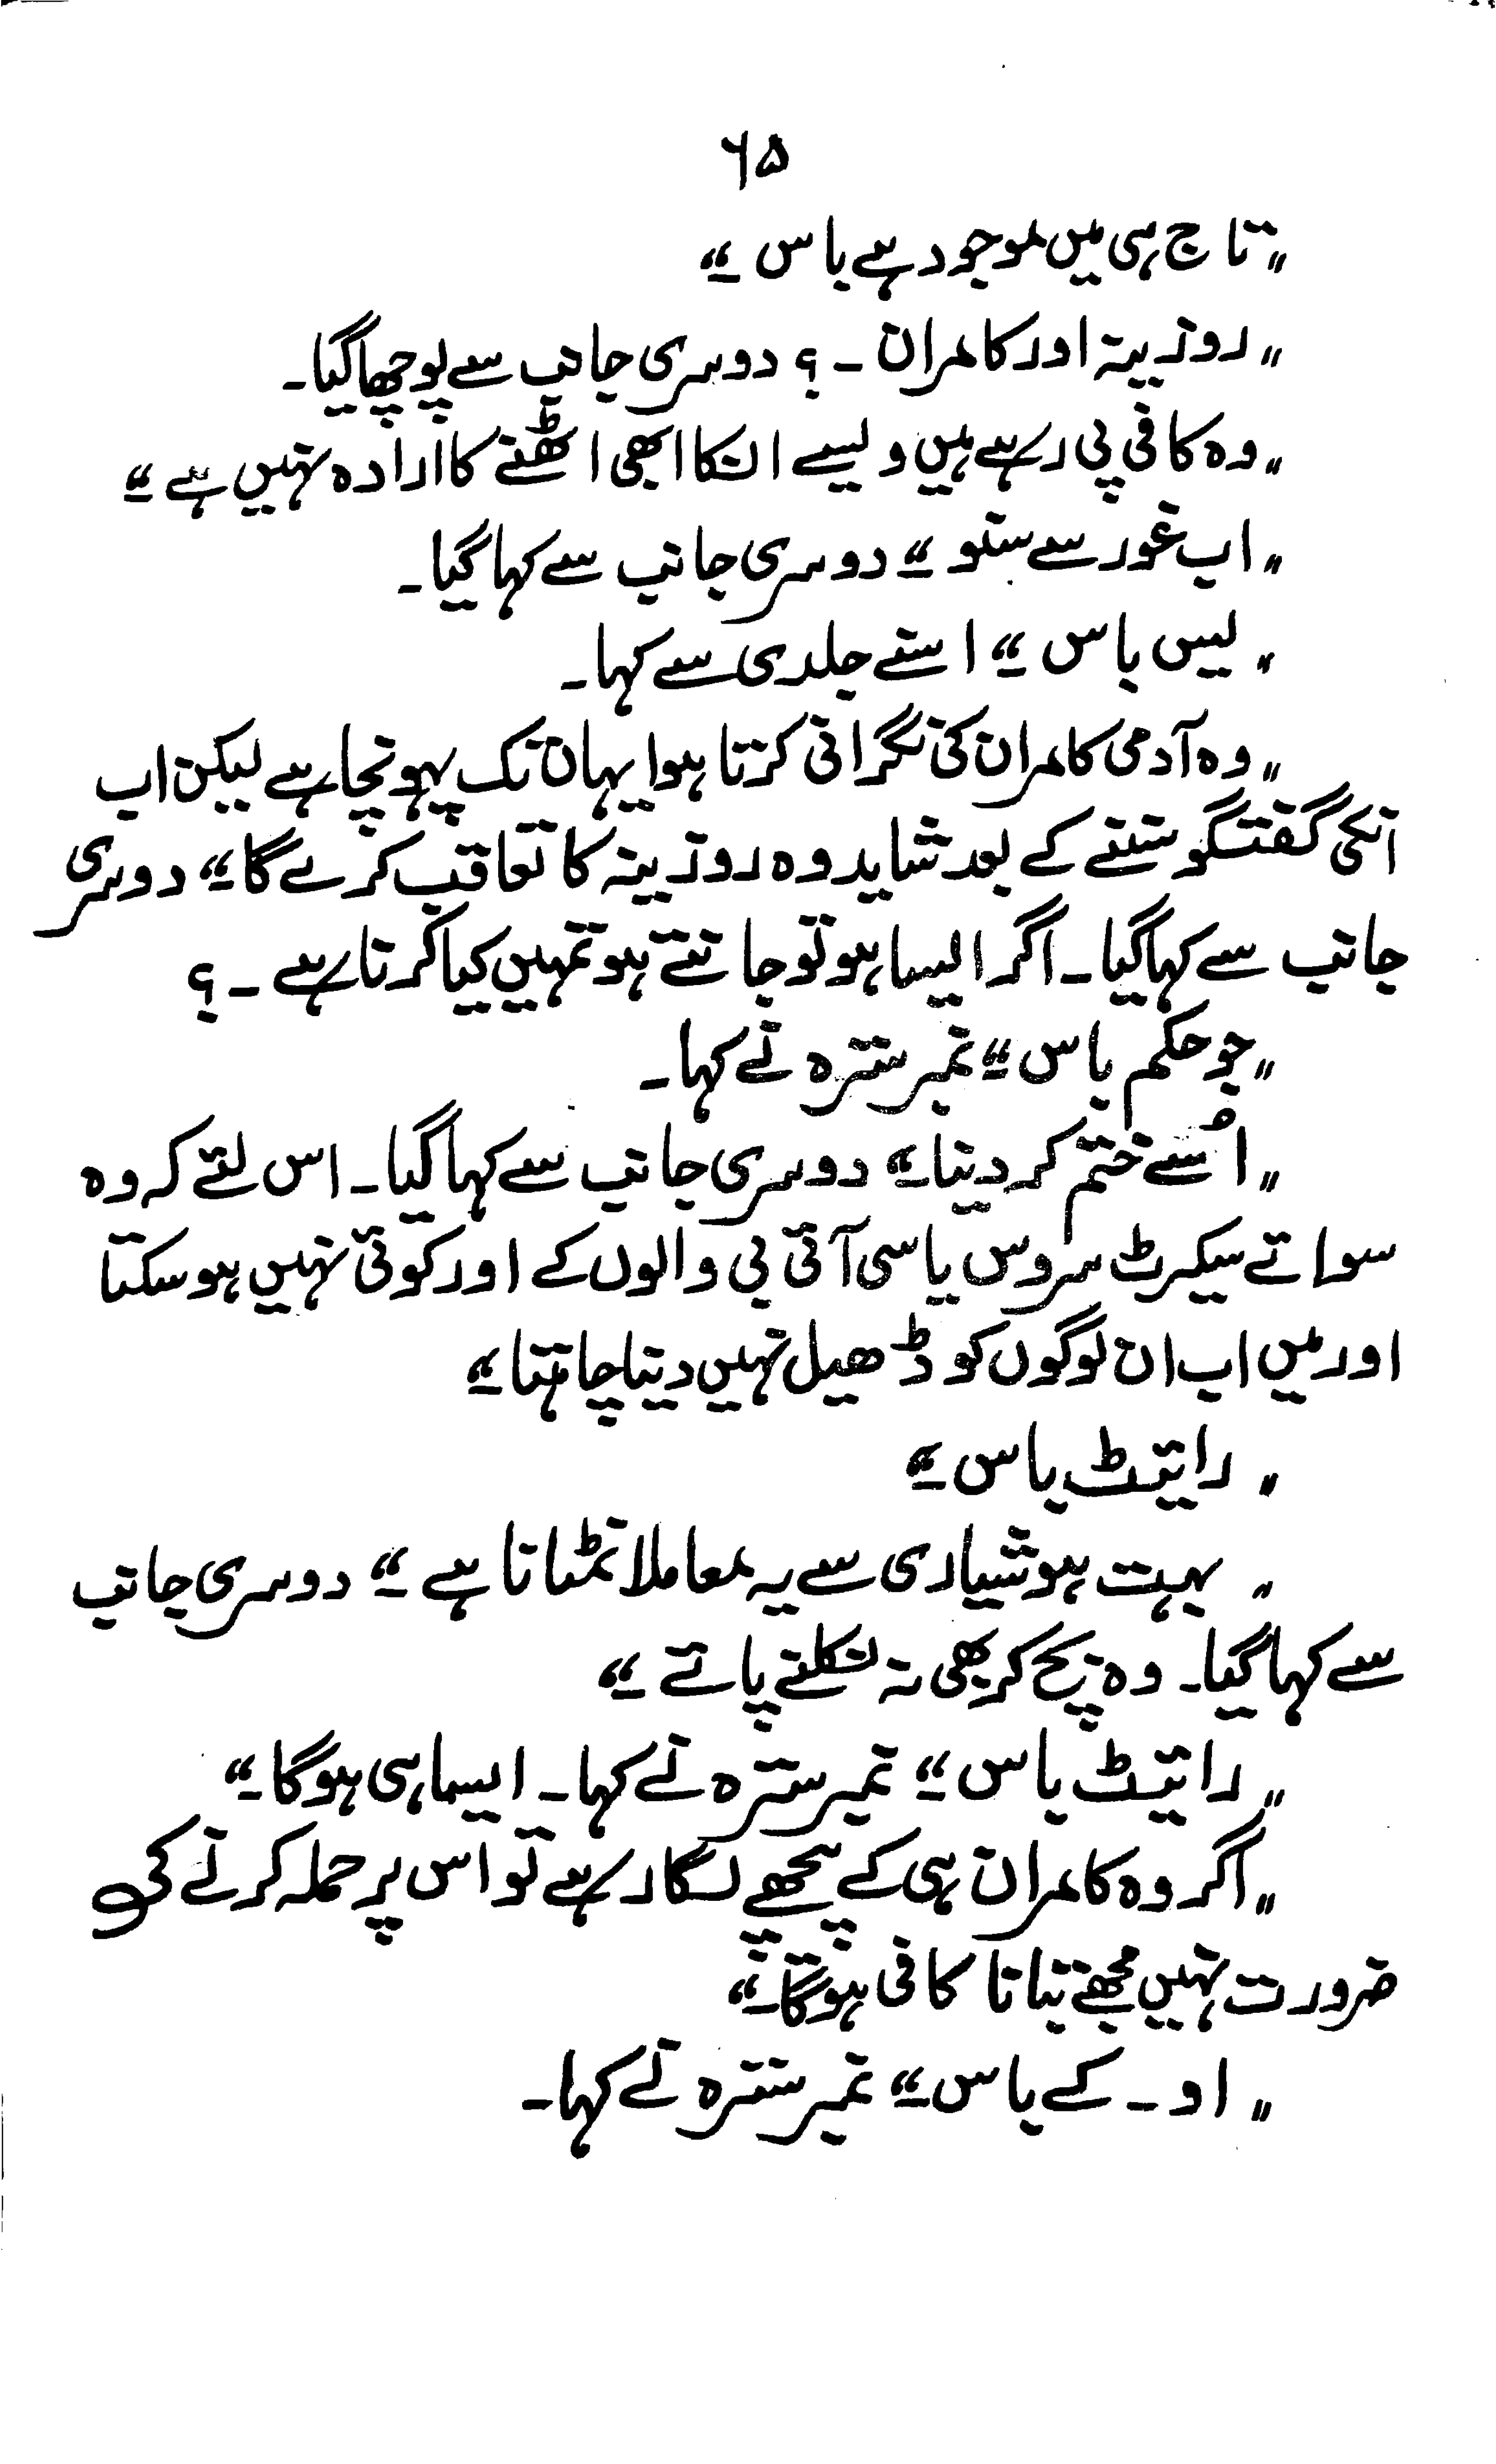 ۶۵
"تاج ہی میں موجود ہے باس۔"
"روزینہ اور کامران۔؟ دوسری جانب سے پوچھا گیا۔
"وہ کافی پی رہے ہیں ویسے انکا ابھی اٹھنے کا ارادہ نہیں ہے۔"
"اب غور سے سنو۔" دوسری جانب سے کہا گیا۔
"یس باس۔" اسنے جلدی سے کہا۔
"وہ آدمی کامران کی نگرانی کرتا ہوا یہاں تک پہونچا ہے لیکن اب
انکی گفتگو سننے کے بعد شاید وہ روزینہ کا تعاقب کرے گا۔" دوسری
جانب سے کہا گیا۔ اگر ایسا ہو تو جانتے ہو تمہیں کیا کرنا ہے۔؟
"جو حکم باس۔" نمبر سترہ نے کہا۔
"اُسے ختم کر دینا۔" دوسری جانب سے کہا گیا۔ اس لئے کہ وہ
سوائے سیکرٹ سروس یا سی آئی بی والوں کے اور کوئی نہیں ہو سکتا
اور میں اب ان لوگوں کو ڈھیل نہیں دینا چاہتا۔"
"رائیٹ باس۔"
"بہت ہوشیاری سے یہ معاملا نمٹانا ہے۔" دوسری جانب
سے کہا گیا۔ وہ بچ کر بھی نہ نکلنے پائے۔"
"رائیٹ باس۔" نمبر سترہ نے کہا۔ ایسا ہی ہوگا۔"
"اگر وہ کامران ہی کے پیچھے لگا رہے تو اس پر حملہ کرنے کی
ضرورت نہیں مجھے بتانا کافی ہوگا۔"
"او۔کے باس۔" نمبر سترہ نے کہا۔